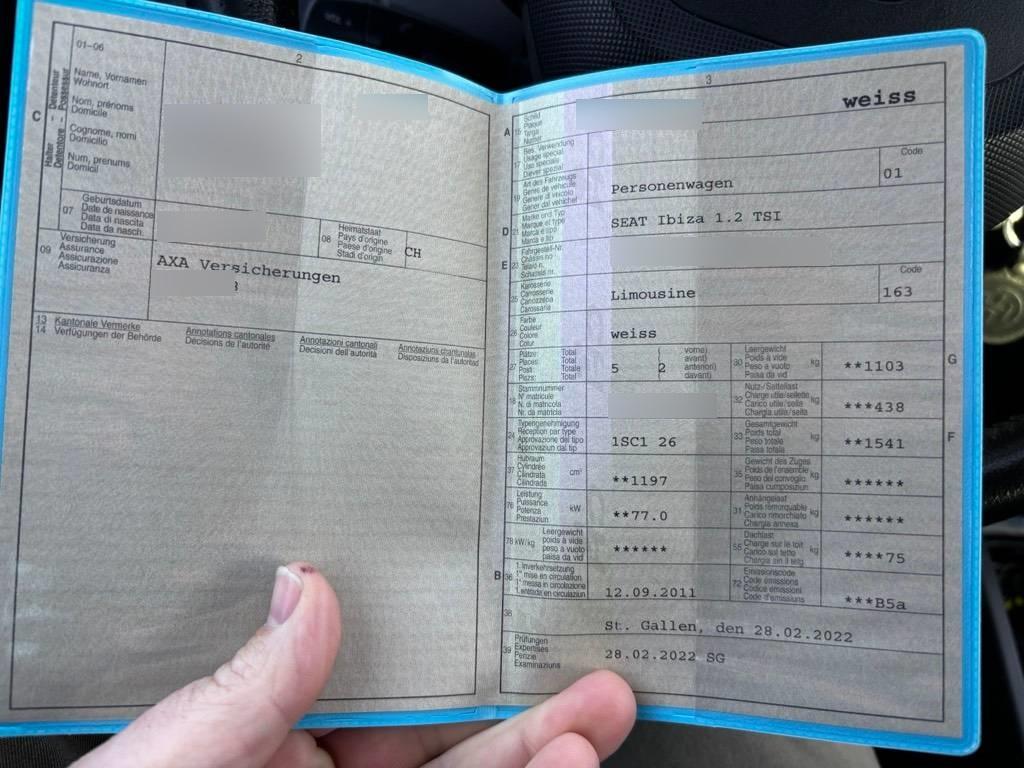 2
01-06
C
Halter
Détenteur
Detentore
Possessur
Name, Vornamen
Wohnort
Nom, prénoms
Domicile
Cognome, nomi
Domicilio
Num, prenums
Domicil
07
Geburtsdatum
Date de naissance
Data di nascita
Data da nasch.
08
Heimatstaat
Pays d'origine
Paese d'origine
Stadi d'origin
CH
09
Versicherung
Assurance
Assicurazione
Assicuranza
AXA Versicherungen
13 Kantonale Vermerke
14 Verfügungen der Behörde
Annotations cantonales
Décisions de l'autorité
Annotazioni cantonali
Decisioni dell'autorità
Annotaziuns chantunalas
Disposiziuns da l'autoritad
3
weiss
A 15
Schild
Plaque
Targa
Numer
17
Bes. Verwendung
Usage spécial
Uso speciale
Diever spezial
19
Art des Fahrzeugs
Genre de véhicule
Genere di veicolo
Gener dal vehichel
Personenwagen
Code
01
D 21
Marke und Typ
Marque et type
Marca e tipo
Marca e tip
SEAT Ibiza 1.2 TSI
E 23
Fahrgestell-Nr.
Châssis no
Telaio n.
Schassis nr.
25
Karosserie
Carrosserie
Carrozzeria
Carossaria
Limousine
Code
163
26
Farbe
Couleur
Colore
Colur
weiss
27
Plätze: Total
Places: Total
Posti: Totale
Plazs: Total
5 ( 2
vorne)
avant)
anteriori)
davant)
30
Leergewicht
Poids à vide
Peso a vuoto
Paisa da vid
kg
**1103
G
18
Stammnummer
N° matricule
N. di matricola
Nr. da matricla
32
Nutz-/Sattellast
Charge utile/sellette
Carico utile/sella
Chargia utila/sella
kg
***438
24
Typengenehmigung
Réception par type
Approvazione del tipo
Approvaziun dal tip
1SC1 26
33
Gesamtgewicht
Poids total
Peso totale
Paisa totala
kg
**1541
F
37
Hubraum
Cylindrée
Cilindrata
Cilindrada
cm³
**1197
35
Gewicht des Zuges
Poids de l'ensemble
Peso del convoglio
Paisa cumposiziun
kg
******
76
Leistung
Puissance
Potenza
Prestaziun
kW
**77.0
31
Anhängelast
Poids remorquable
Carico rimorchiato
Chargia annexa
kg
******
78 kW/kg
Leergewicht
poids à vide
peso a vuoto
paisa da vid
******
55
Dachlast
Charge sur le toit
Carico sul tetto
Chargia sin il tetg
kg
****75
B 36
1. Inverkehrsetzung
1re mise en circulation
1a messa in circolazione
1. entrada en circulaziun
12.09.2011
72
Emissionscode
Code émissions
Codice emissioni
Code d'emissiuns
***B5a
38
St. Gallen, den 28.02.2022
39
Prüfungen
Expertises
Perizie
Examinaziuns
28.02.2022 SG